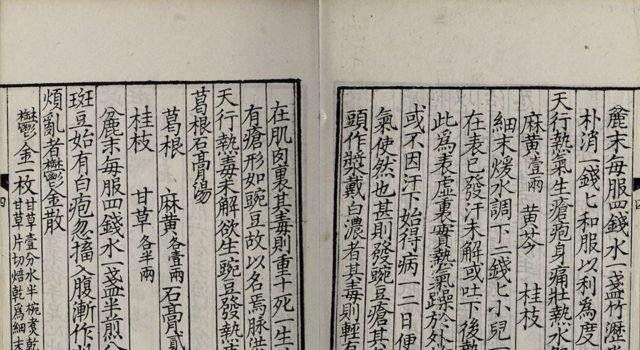 麄末每服四錢水一盞竹瀝
朴消一錢匕和服以利爲度
天行熱氣生瘡疱身痛壯熱水
麻黄壹兩 黄芩 桂枝
細末煖水調下二錢匕小兒一
在表已發汗未解或吐下後
此爲表虚裏實熱氣躁於外
或不因汗下始得病一二日便
氣使然也甚則發豌豆瘡其
頭作漿戴白濃者其毒則輕有
四
在肌肉裏其毒則重十死一生
有瘡形如豌豆故以名焉脉洪
天行熱毒未解欲生豌豆發熱
葛根石膏湯
葛根 麻黄各壹兩 石膏貳
桂枝 甘草各半兩
麄末每服四錢水一盞半煎
斑豆始有白疱忽搐入腹漸作
煩亂者欝金散
欝金一枚 甘草壹分水半椀煑乾
甘草片切焙乾爲細末
四